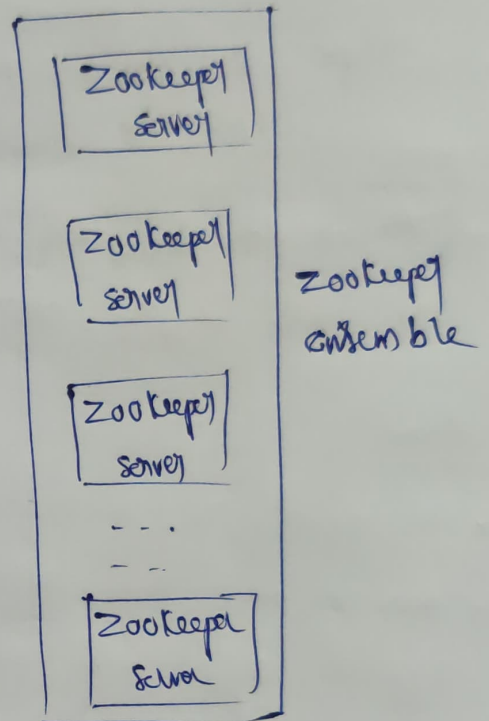 Zookeeper
server
Zookeeper
server
Zookeeper
ensemble
Zookeeper
server
- - .
- -
Zookeeper
server